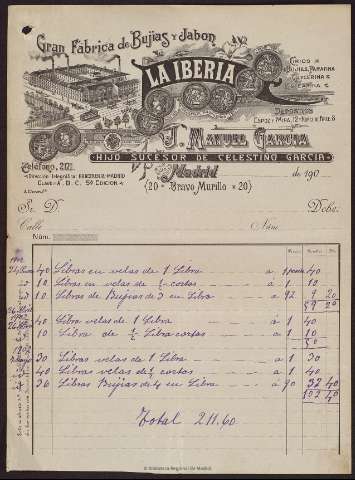 Gran Fábrica de Bujías y Jabon
LA IBERIA
UNICO
BUJIAS, PARAFINA
GLICERINA
ESTEARINA
DEPOSITOS
ESPOZ Y MINA, 12
J. MANUEL GARCIA
HIJO SUCESOR DE CELESTINO GARCIA
Teléfono, 202
Dirección Telegráfica: MADRID
CLAVE: A. B. C. 5ª EDICION
Madrid de 190
(20 Bravo Murillo 20)
Sr. D. Debe:
Calle Núm.
Núm.
40 Libras en velas de 1 Libra á 1 40
10 Libras en velas de ½ cortas á 1 10
10 Libras de Bujias de 3 en Libra á 92 9 20
59 20
40 Libra velas de 1 Libra á 1 40
10 Libra de ½ Libra cortas á 1 10
50
30 Libras velas de 1 Libra á 1 30
40 Libras velas de ½ cortas á 1 40
36 Libras Bujias de 4 en Libra á 90 32 40
102 40
Total 211.60
© Biblioteca Regional de Madrid